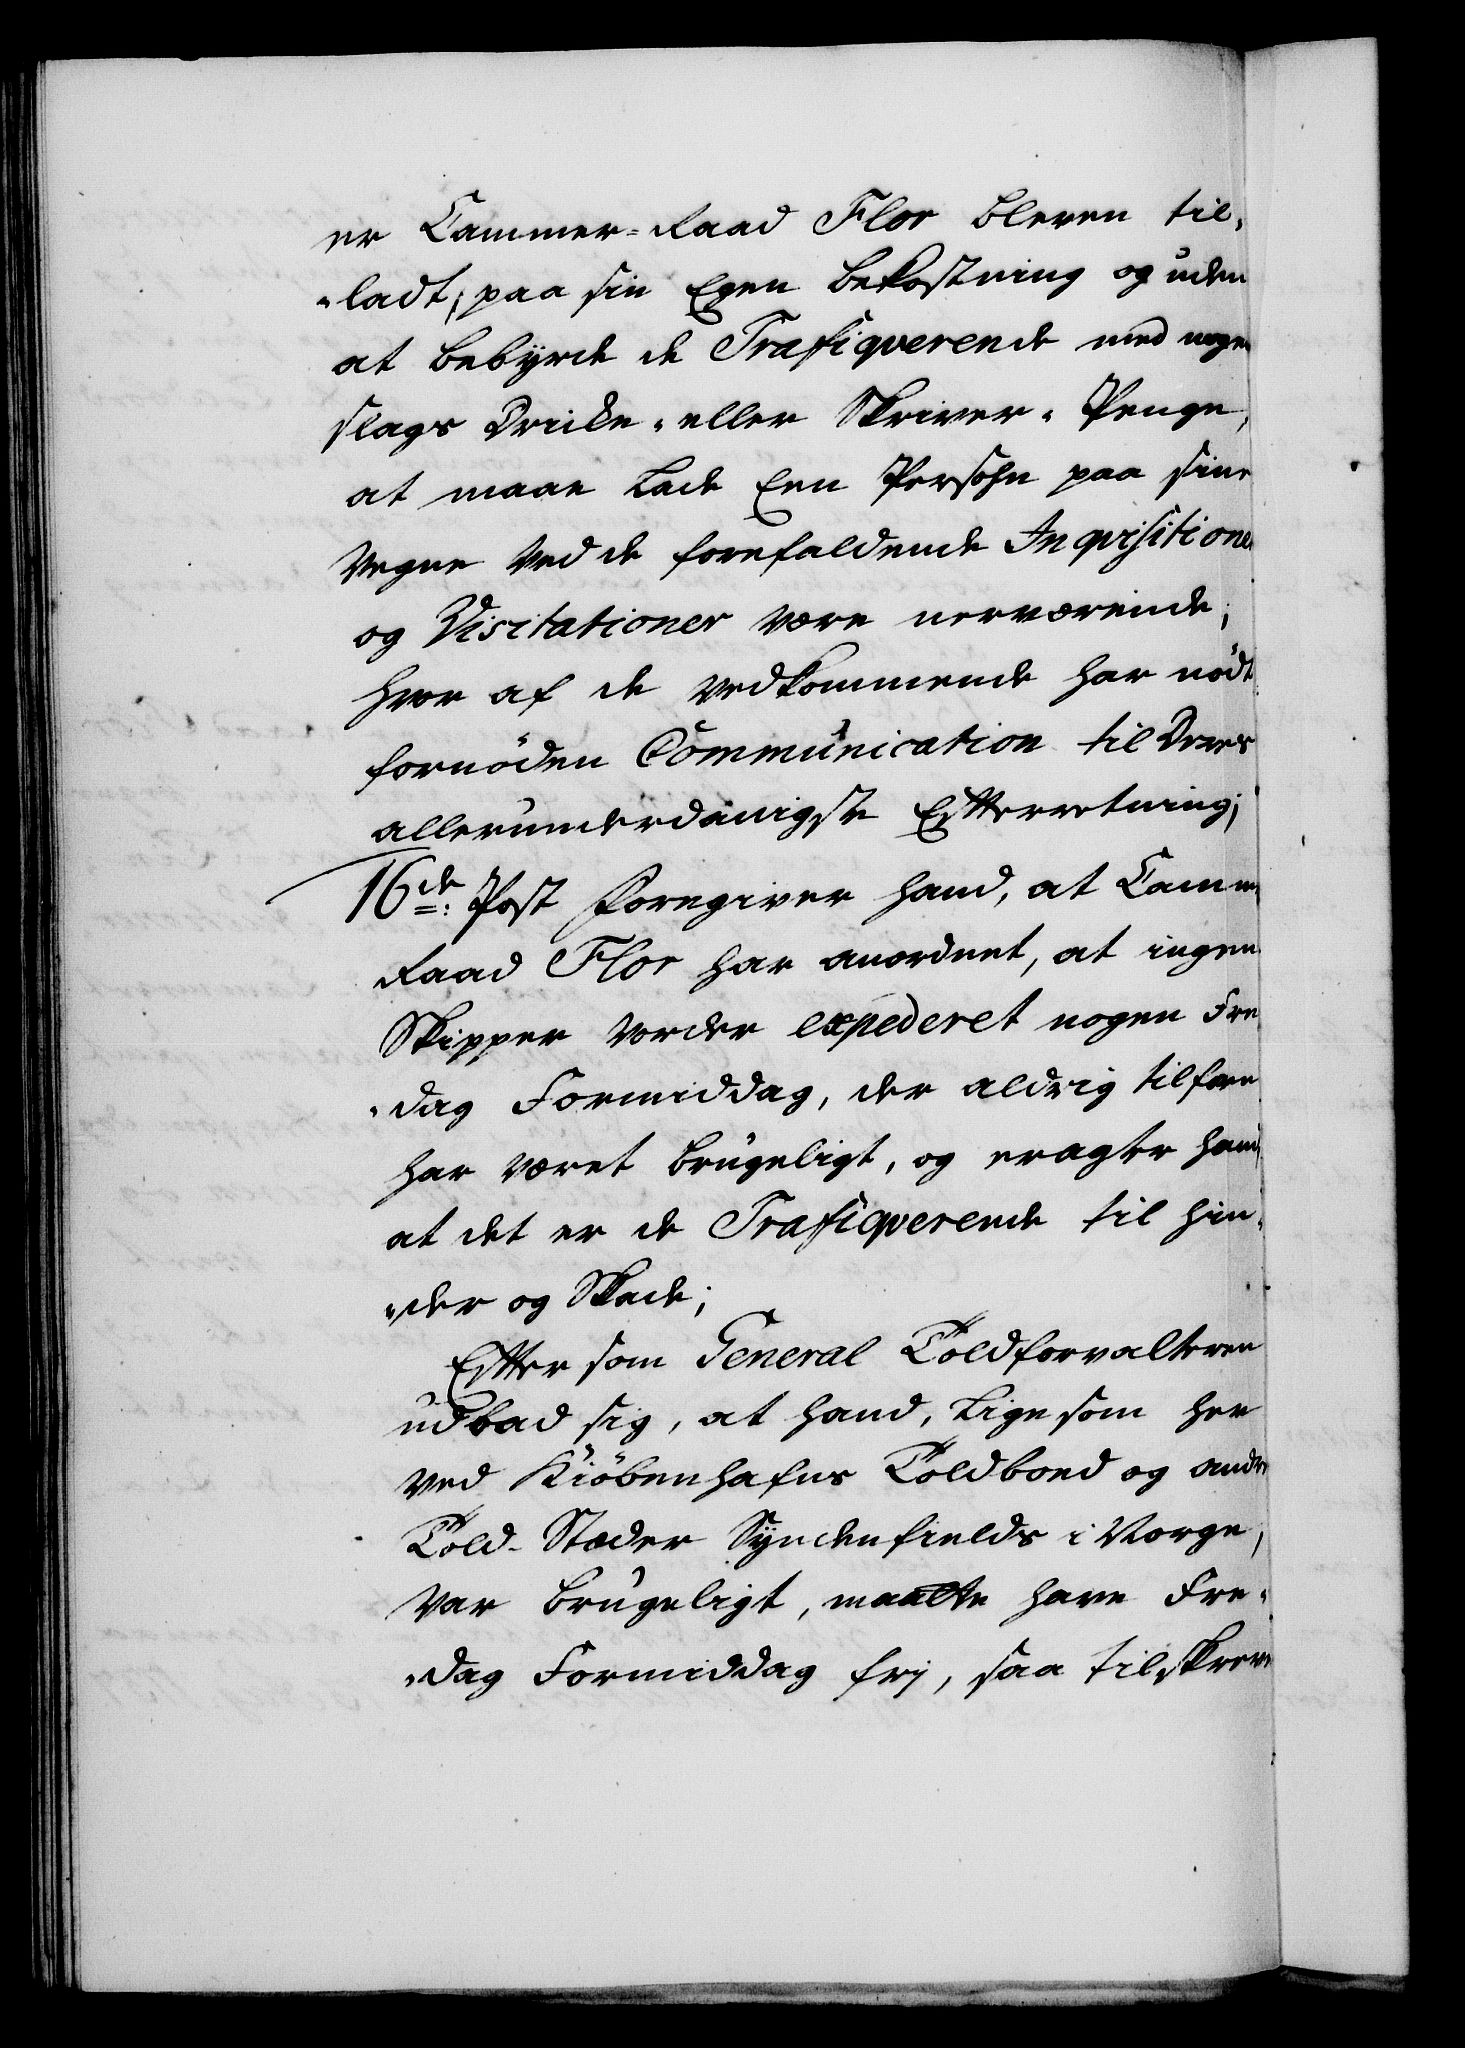 er Cammer-Raad Flor bleven til-
-ladt, paa sin Egen bekostning og uden
at bebyrde de Trafiqverende med nogen
slags Dricke- eller Skriver-Penge,
at maae lade Een Persohn paa sine
Vegne ved de forefaldende Inqvisitioner
og Visitationer være nerværende;
hvor af de vedkommende har nødt
fornøden Communication til Deres
allerunderdanigste Efterretning;
16de: Post foregiver hand, at Camm
Raad Flor har anordnet, at ingen
Skipper vorder expederet nogen Fre
-dag Formiddag, der aldrig tilforn
har været brugeligt, og eragter hand,
at det er de Trafiqverende til hin-
-der og Skade;
Efter som General Toldforvalteren
udbad sig, at hand, ligesom her
ved Kiöbenhafns Toldboed og andre
Told-Stæder Syndenfields i Norge,
var brugeligt, maatte have Fre-
-dag Formiddag frj, saa tilskrev